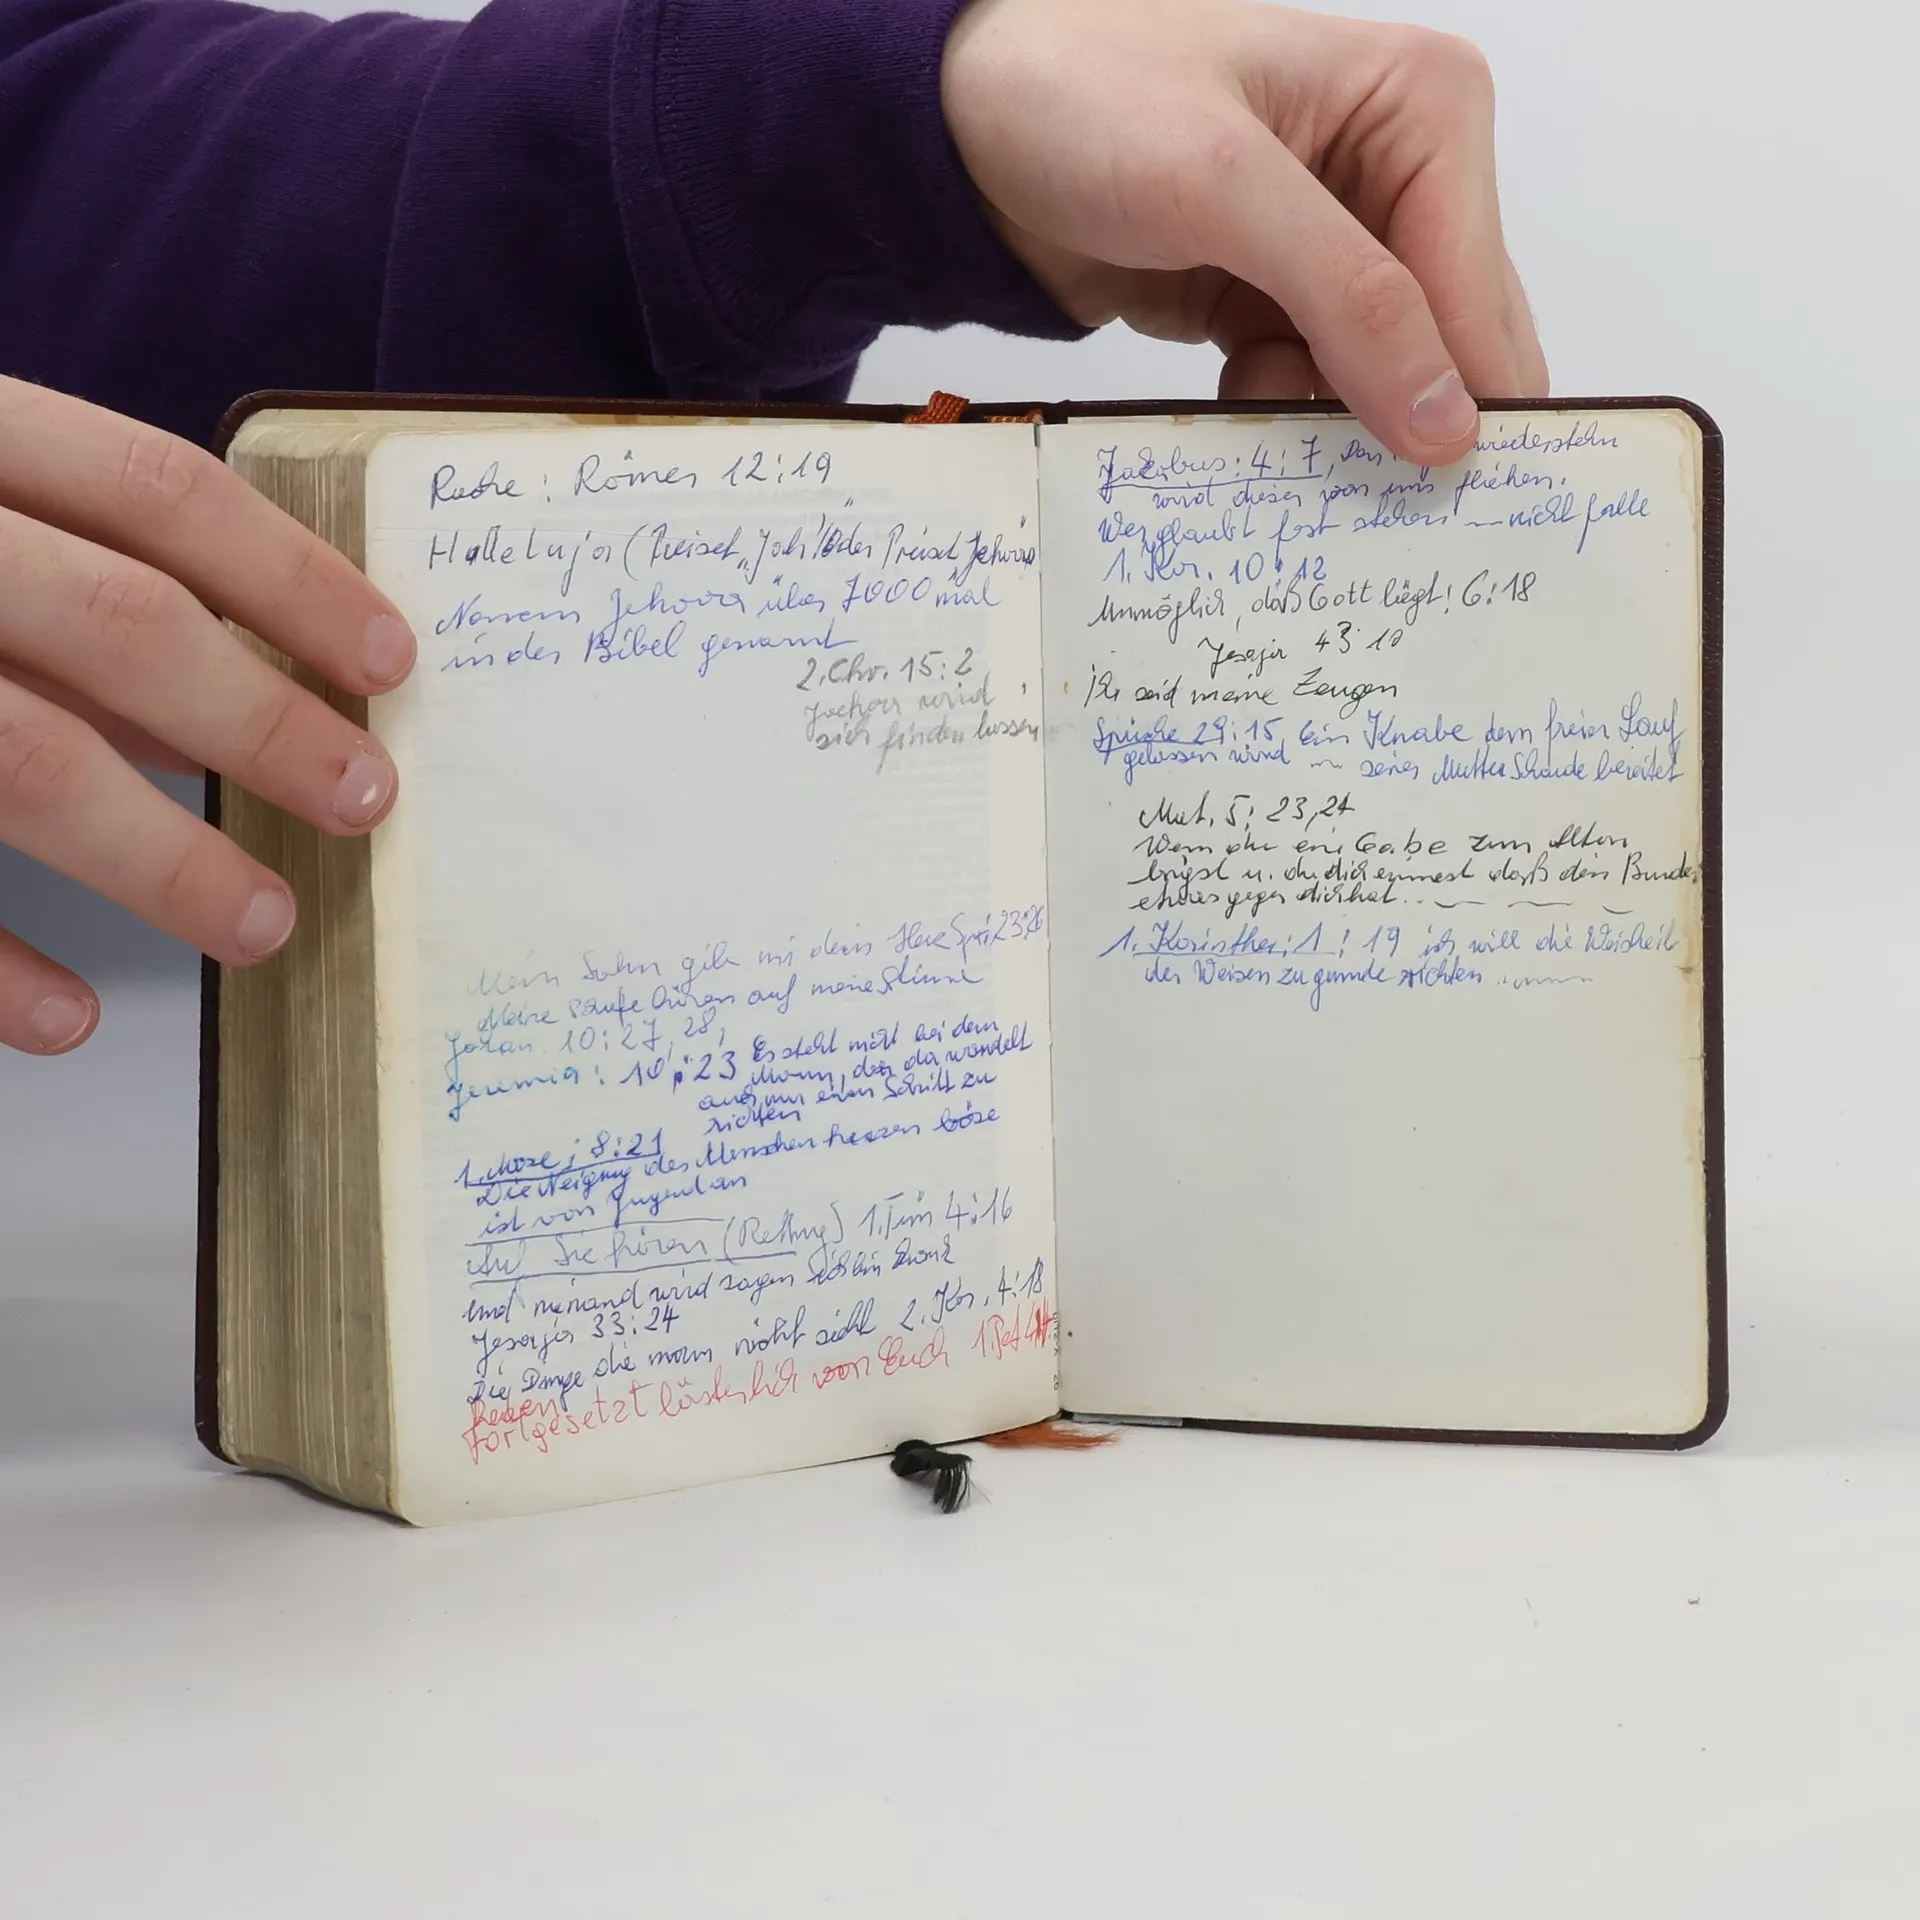 Rache : Römer 12:19
Halleluja (Preiset „Jah" oder Preiset „Jehova"
Namen Jehova über 7000 mal
in der Bibel genannt
2. Chr. 15:2
Jehova wird
sich finden lassen
Mein Sohn gib mir dein Herz Spr. 23:26
Meine Schafe hören auf meine Stimme
Johan. 10:27, 28,
Jeremia: 10:23 Es steht nicht bei dem
Mann, der da wandelt
auch nur einen Schritt zu
richten
1. Mose; 8:21
Die Neigung des Menschen herzen böse
ist von Jugend an
Auf Sie hören (Rettung) 1. Tim 4:16
Und niemand wird sagen ich bin krank
Jesaja 33:24
Die Dinge die man nicht sieht 2. Kor. 4:18
fortgesetzt lästerlich von Euch 1. Pet 4:4
Jakobus: 4:7, Den wiederstehn
wird dieser von uns fliehen.
Wer glaubt fest stehen — nicht falle
1. Kor. 10:12
Unmöglich, daß Gott lügt! 6:18
Jesaja 43:10
Ihr seid meine Zeugen
Sprüche 29:15, Ein Knabe dem freier Lauf
gelassen wird ~ seiner Mutter Schande bereitet
Mat. 5: 23,24
Wenn du eine Gabe zum Altar
bringst u. du dich erinnerst daß dein Bruder
etwas gegen dich hat..
1. Korinther: 1: 19 ich will die Weisheit
der Weisen zugrunde richten